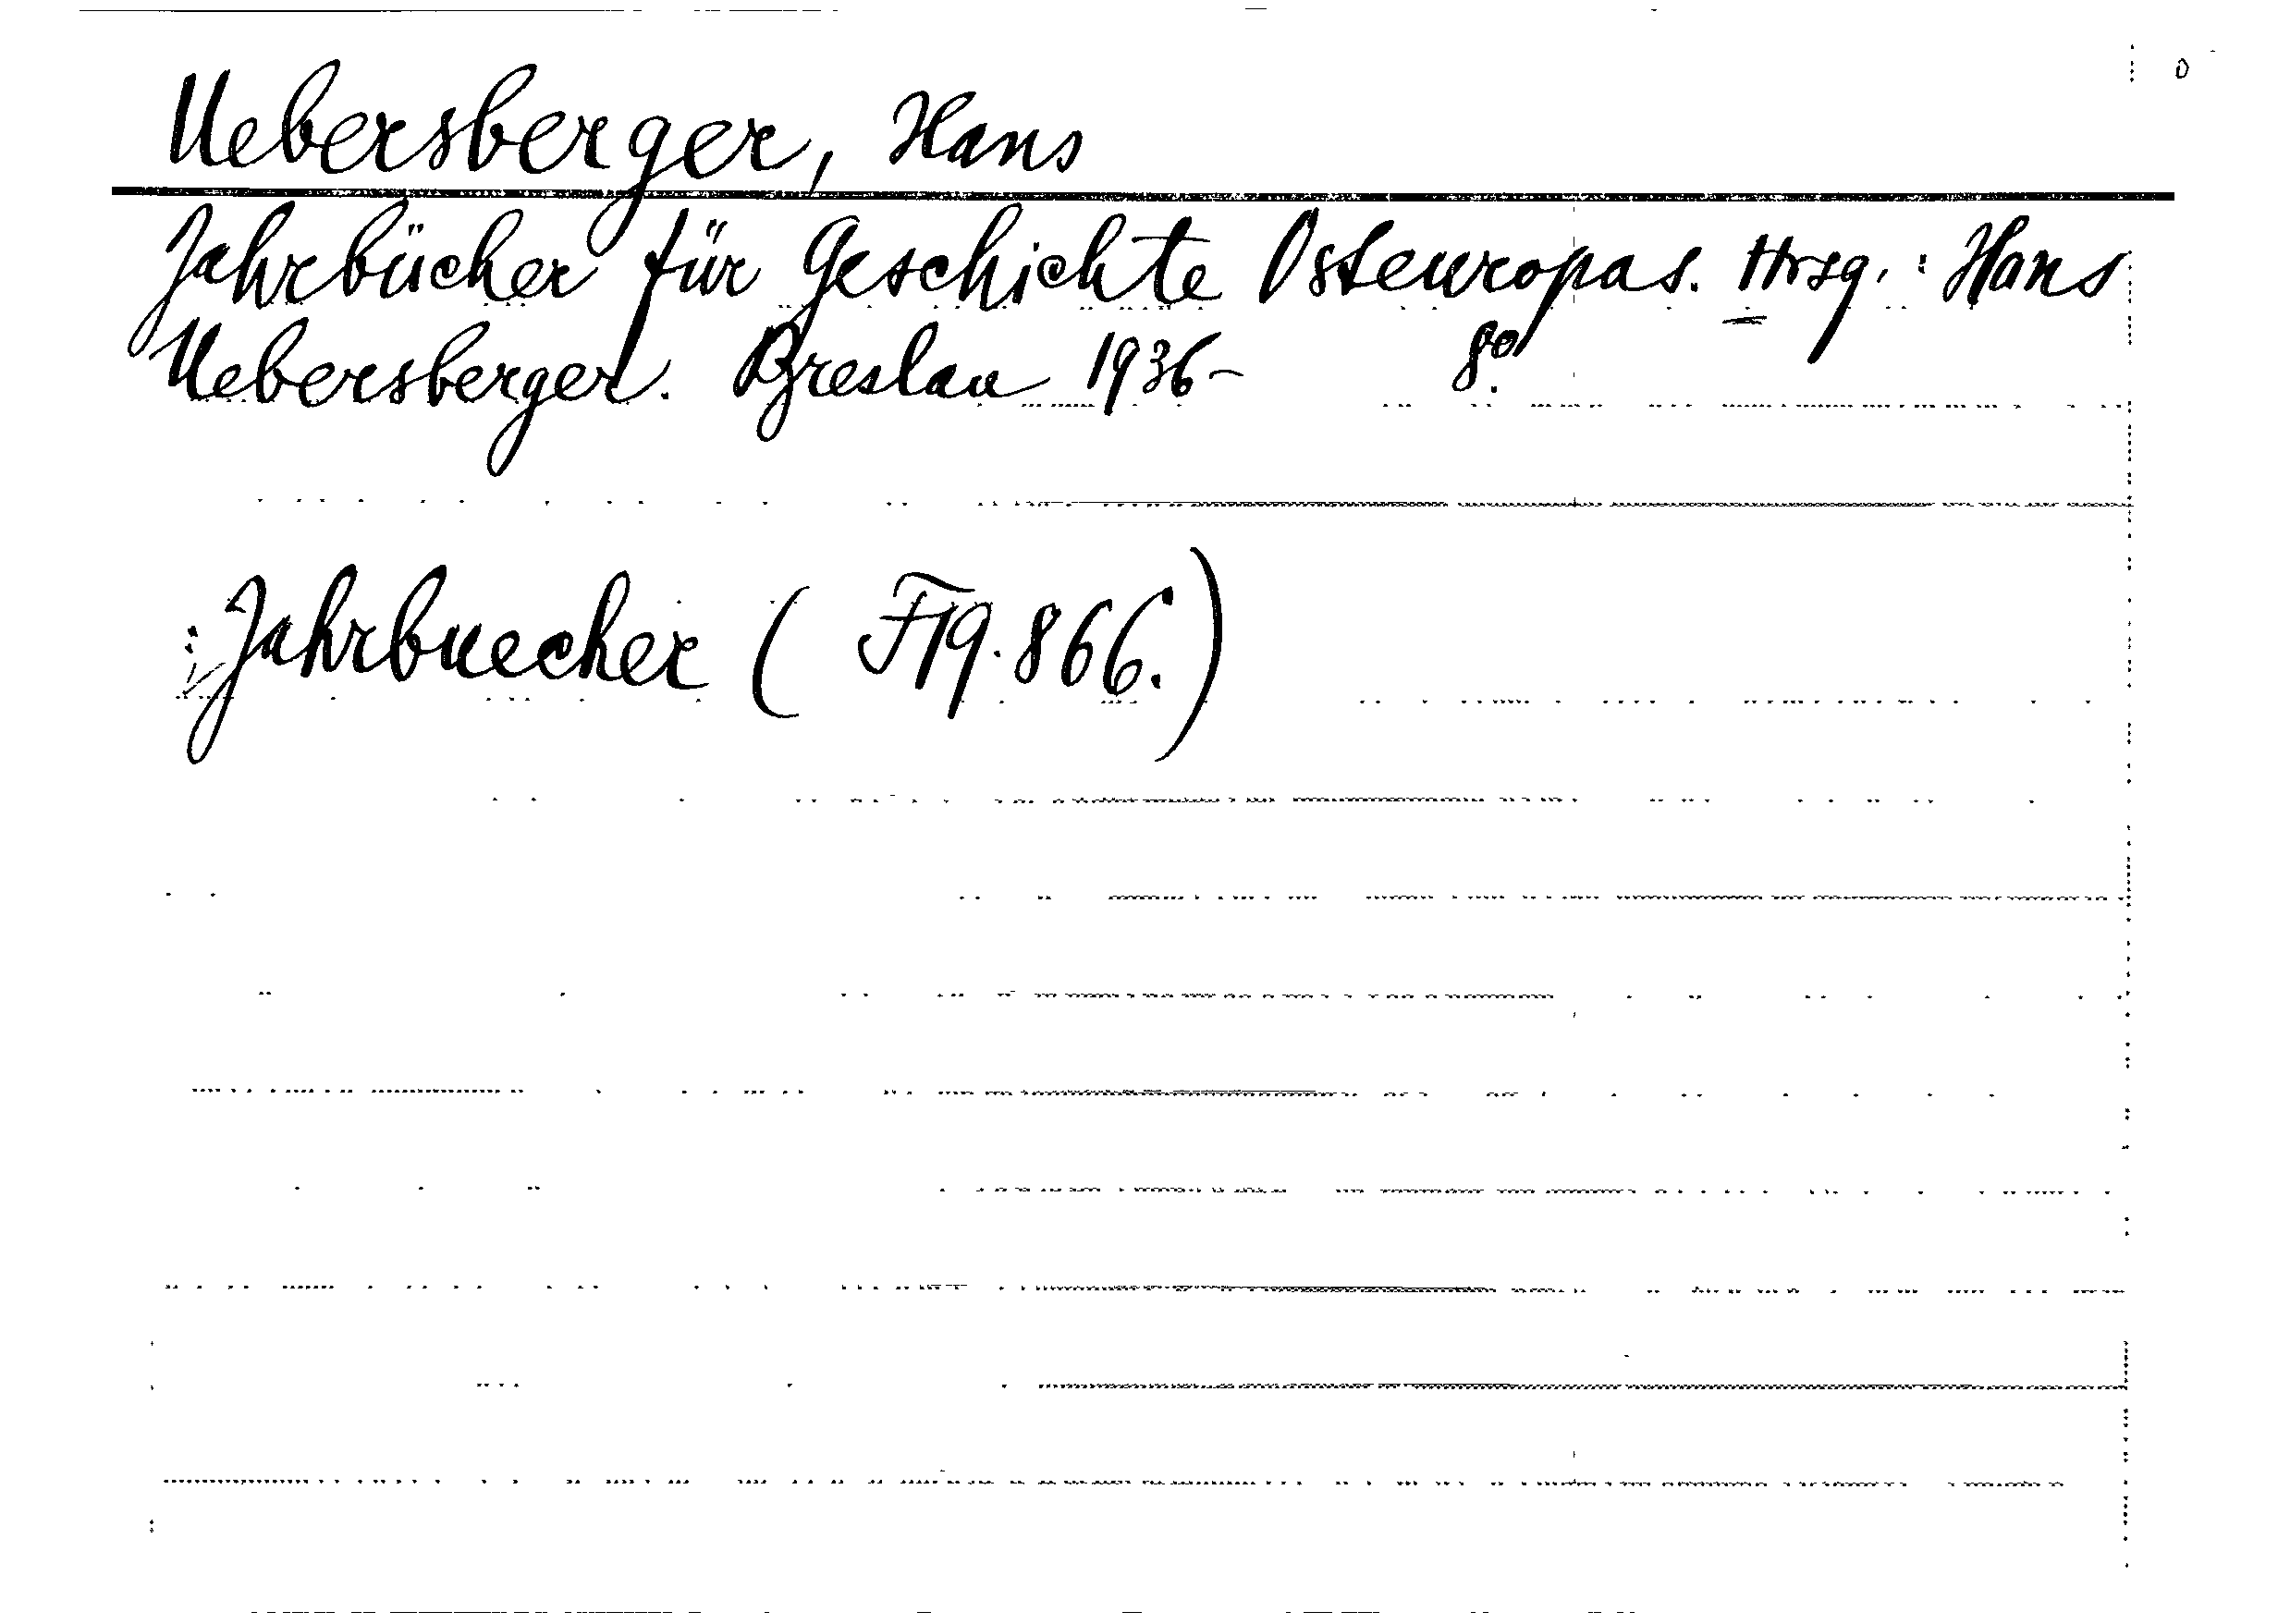 Uebersberger, Hans
Jahrbücher für Geschichte Osteuropas. Hrsg.: Hans
Uebersberger. Breslau 1936- 8º.
: Jahrbuecher ( F19.866.)